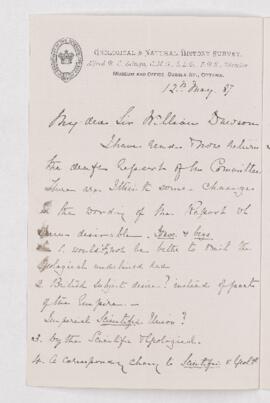 GEOLOGICAL & NATURAL HISTORY SURVEY.
Alfred R. C. Selwyn, C.M.G., L.L.D., F.R.S., Director
MUSEUM AND OFFICE, SUSSEX ST., OTTAWA.
12th May 87
My dear Sir William Dawson
I have read & now return
the draft Report of the Committee
There are I think some changes
in the wording of the Report wh
seems desirable.
1. would it not be better to omit the
Geological underlined red
2 British Subject desire? instead of parts
of the Empire —
Imperial Scientific Union?
3. by the Scientific & Geological.
4. A corresponding change to Scientific & Geoll